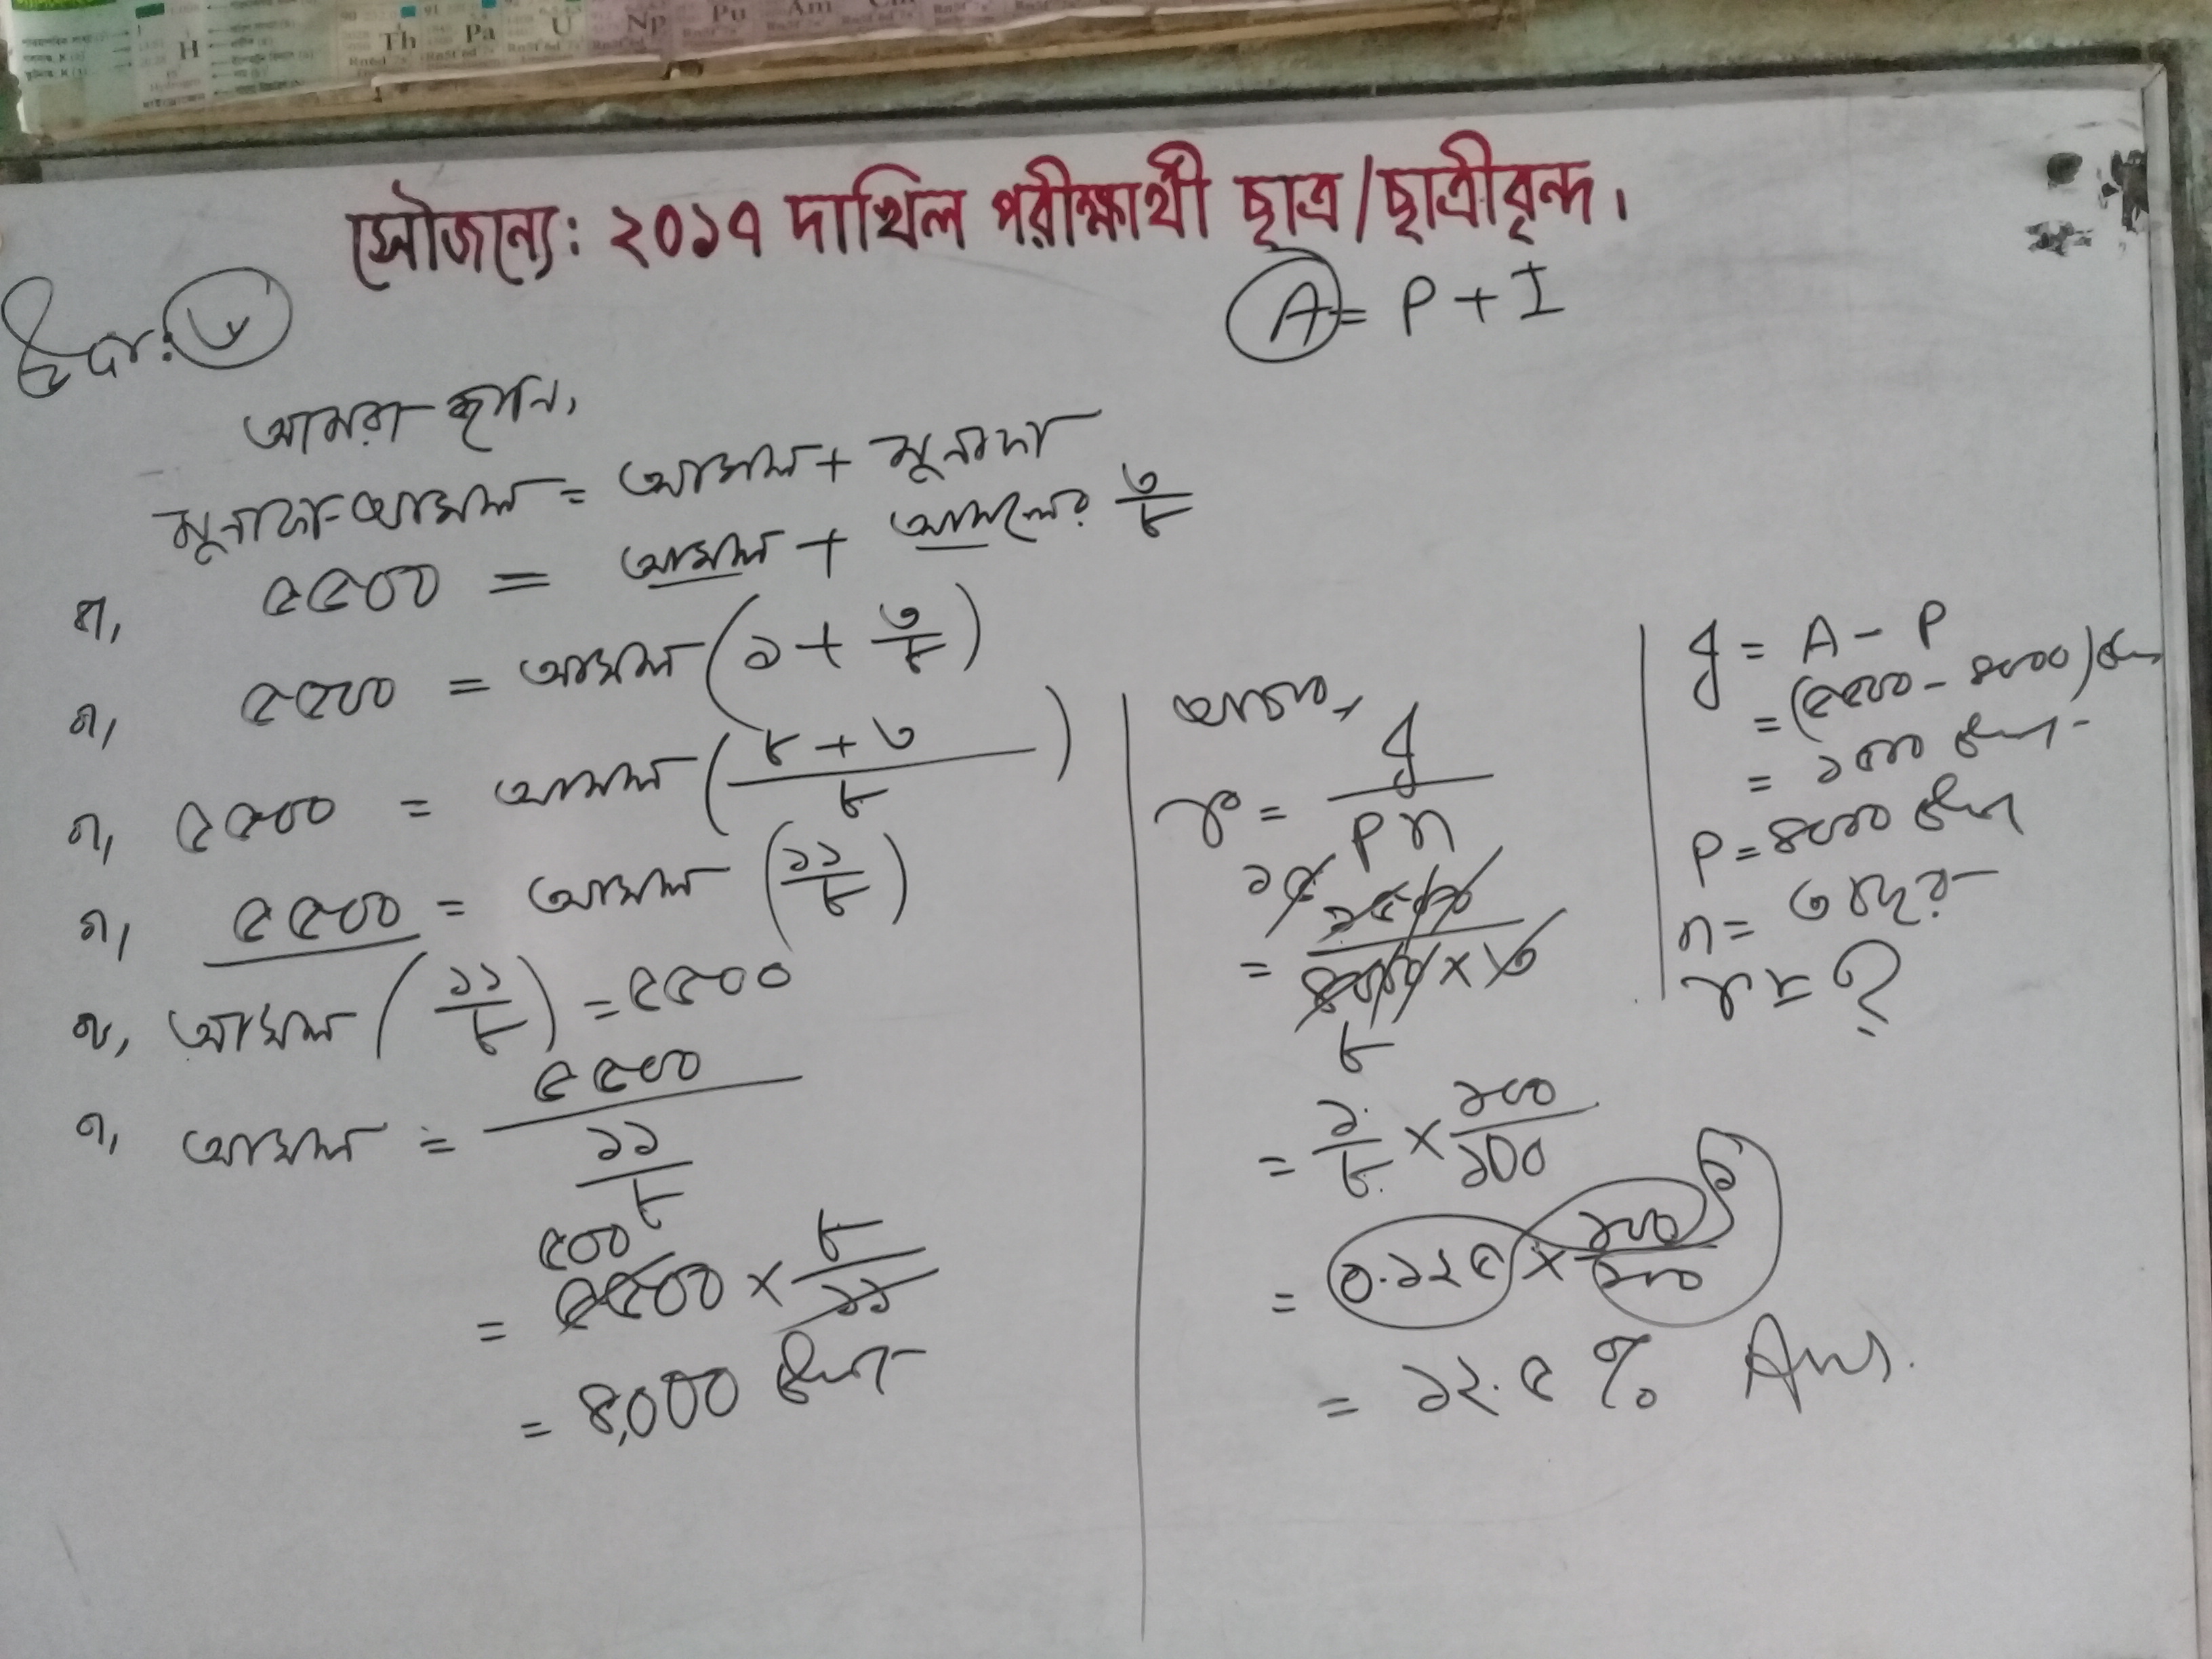 H Th Pa U Np Pu Am
সৌজন্যে: ২০১৭ দাখিল পরীক্ষার্থী ছাত্র/ছাত্রীবৃন্দ।
A = P + I
উদা: ৬
আমরা জানি,
মুনাফা-আসল = আসল + মুনাফা
বা, ৫৫০০ = আসল + আসলের ৩/৮
বা, ৫৫০০ = আসল (১ + ৩/৮)
বা, ৫৫০০ = আসল (৮ + ৩/৮)
বা, ৫৫০০ = আসল (১১/৮)
বা, আসল (১১/৮) = ৫৫০০
বা, আসল = ৫৫০০/১১/৮
৫০০
= ৫৫০০ × ৮/১১
= ৪,০০০ টাকা
আবার,
r = I/Pn
১৫
= ১৫০০/৪০০০ × ৩
৮
= ১/৮ × ১০০/১০০
= ০.১২৫ × ১০০/১০০
= ১২.৫ % Ans.
I = A - P
= (৫৫০০ - ৪০০০) টাকা
= ১৫০০ টাকা
P = ৪০০০ টাকা
n = ৩ বছর
r = ?